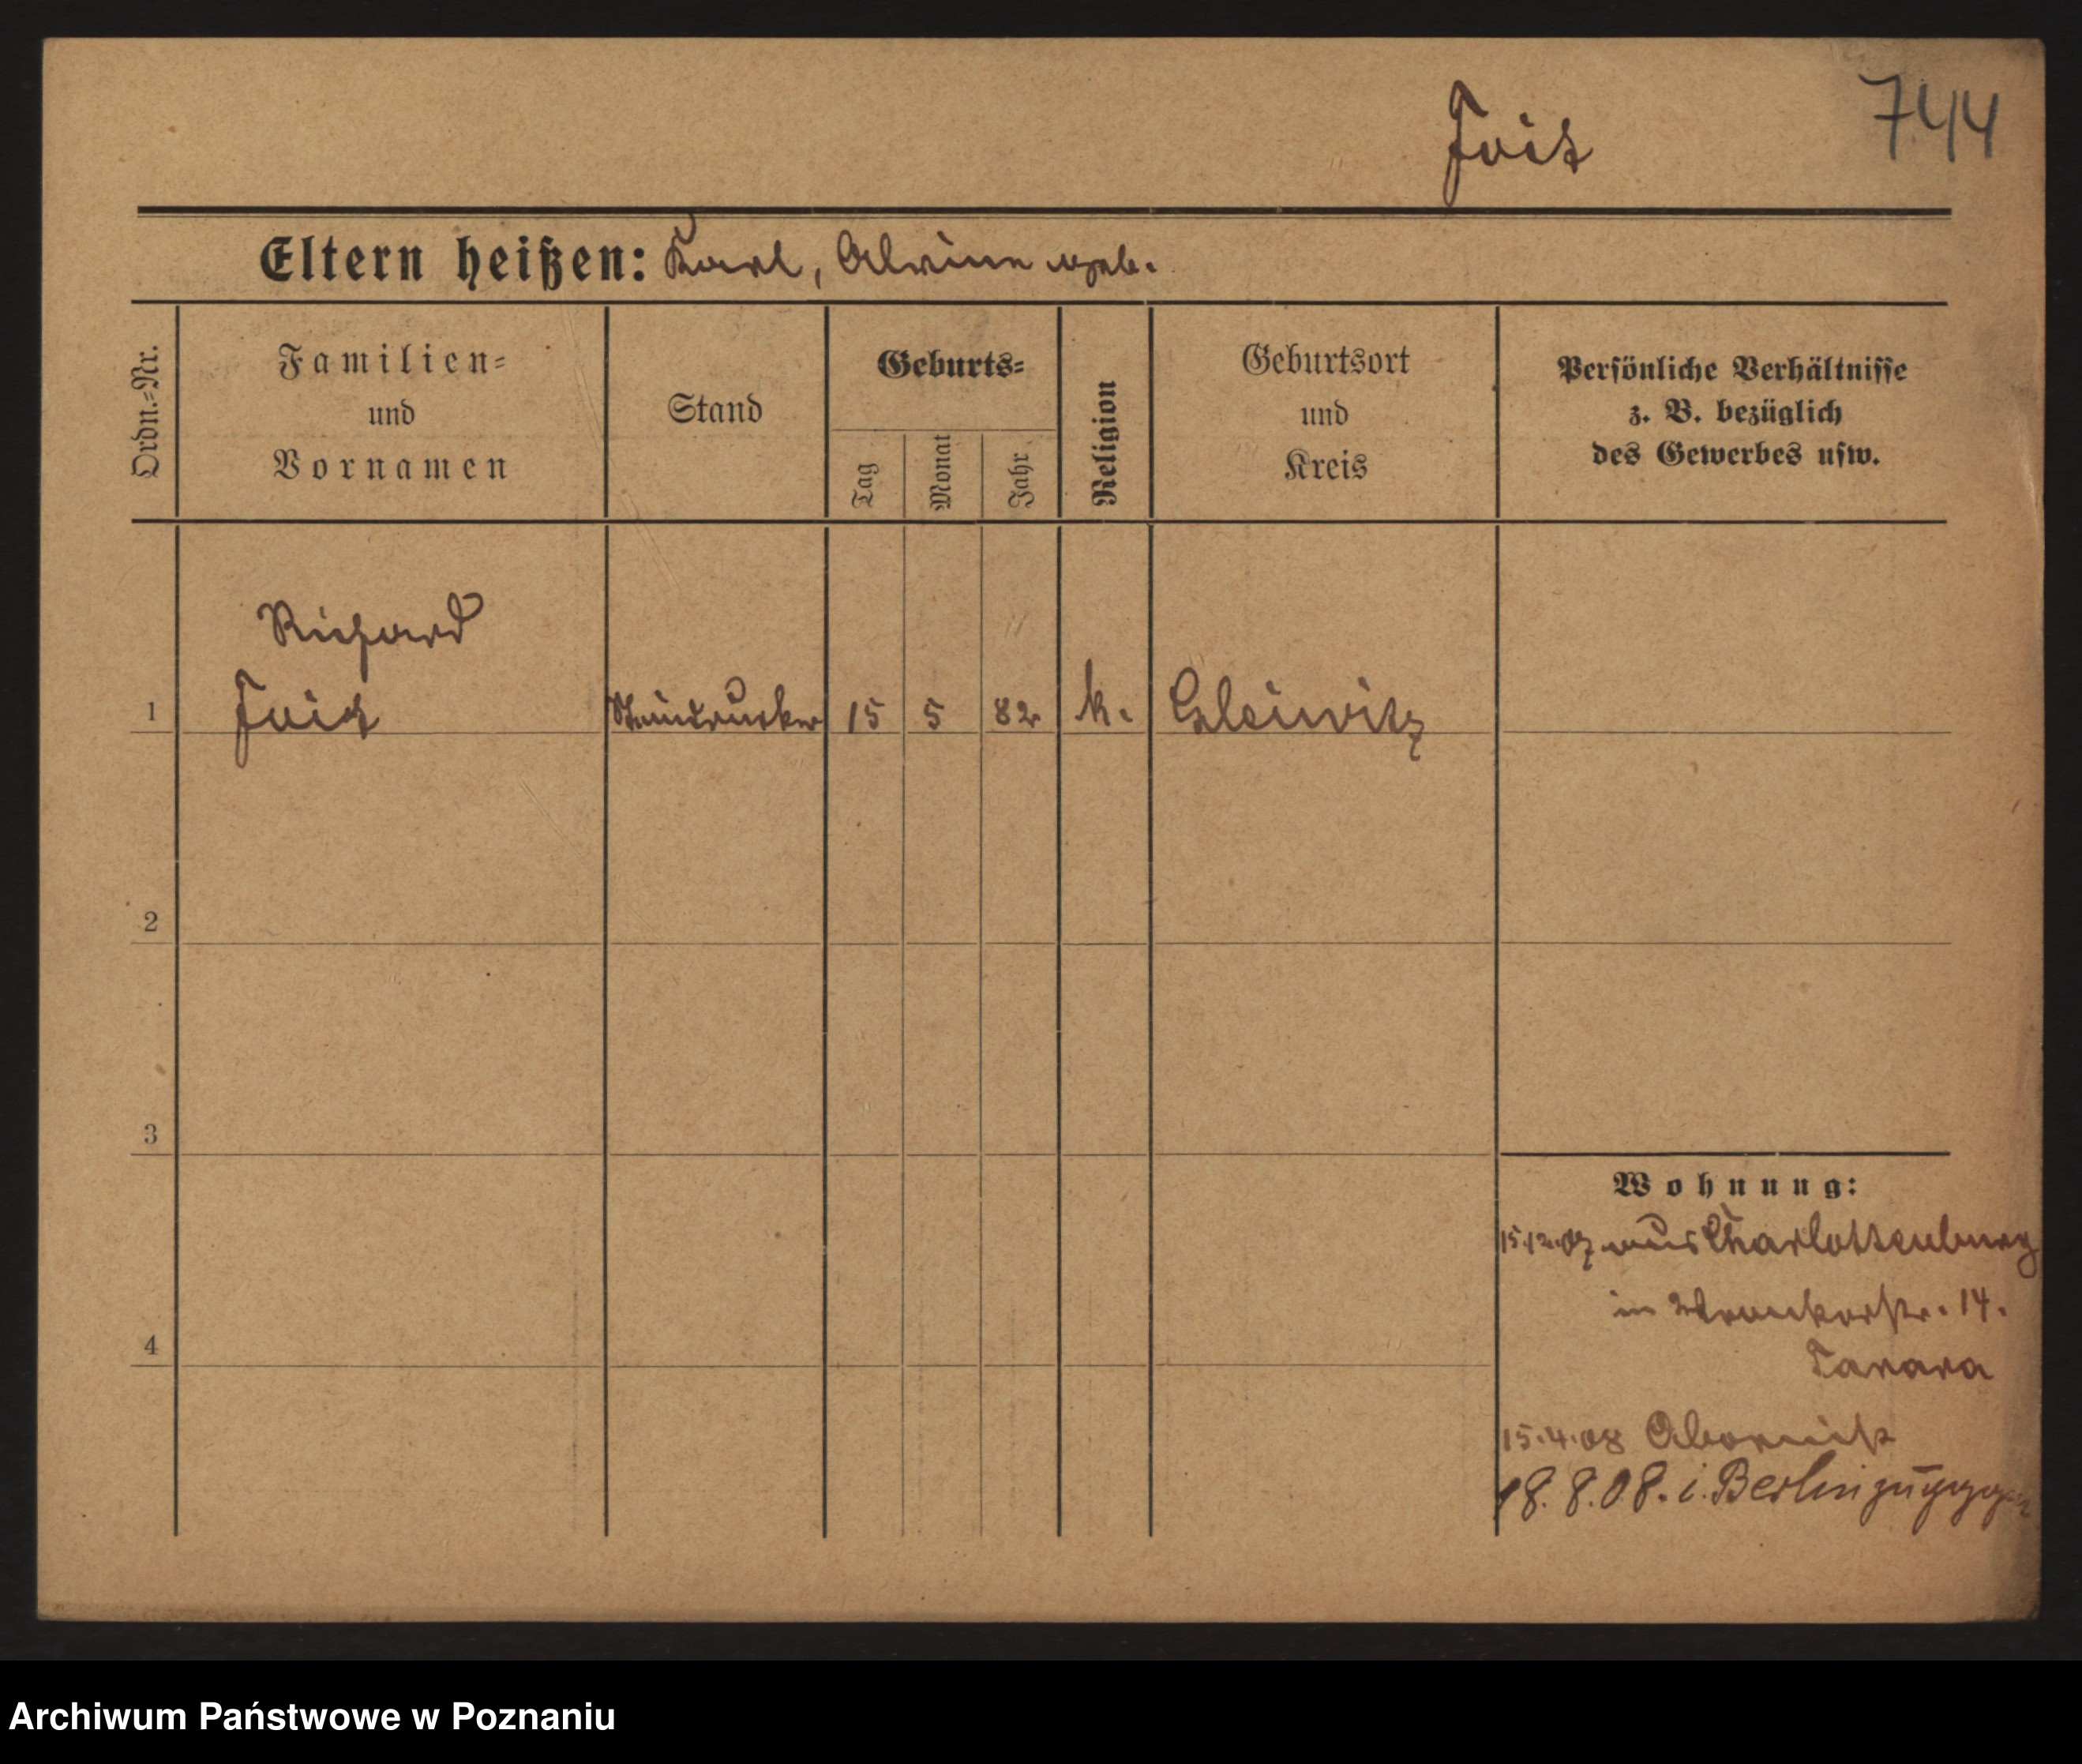 Foit 744
Eltern heißen: Karl, Alwine geb.
Ordn.-Nr.
Familien-
und
Vornamen
Stand
Geburts-
Tag
Monat
Jahr
Religion
Geburtsort
und
Kreis
Persönliche Verhältnisse
z. B. bezüglich
des Gewerbes usw.
Richard
1 Foit Steindrucker 15 5 82 k. Gleiwitz
2
3
4
Wohnung:
15.12.07 aus Charlottenburg
in Wronkerstr. 14.
15.4.08 Obornik
18.8.08. i. Berlin
Archiwum Państwowe w Poznaniu